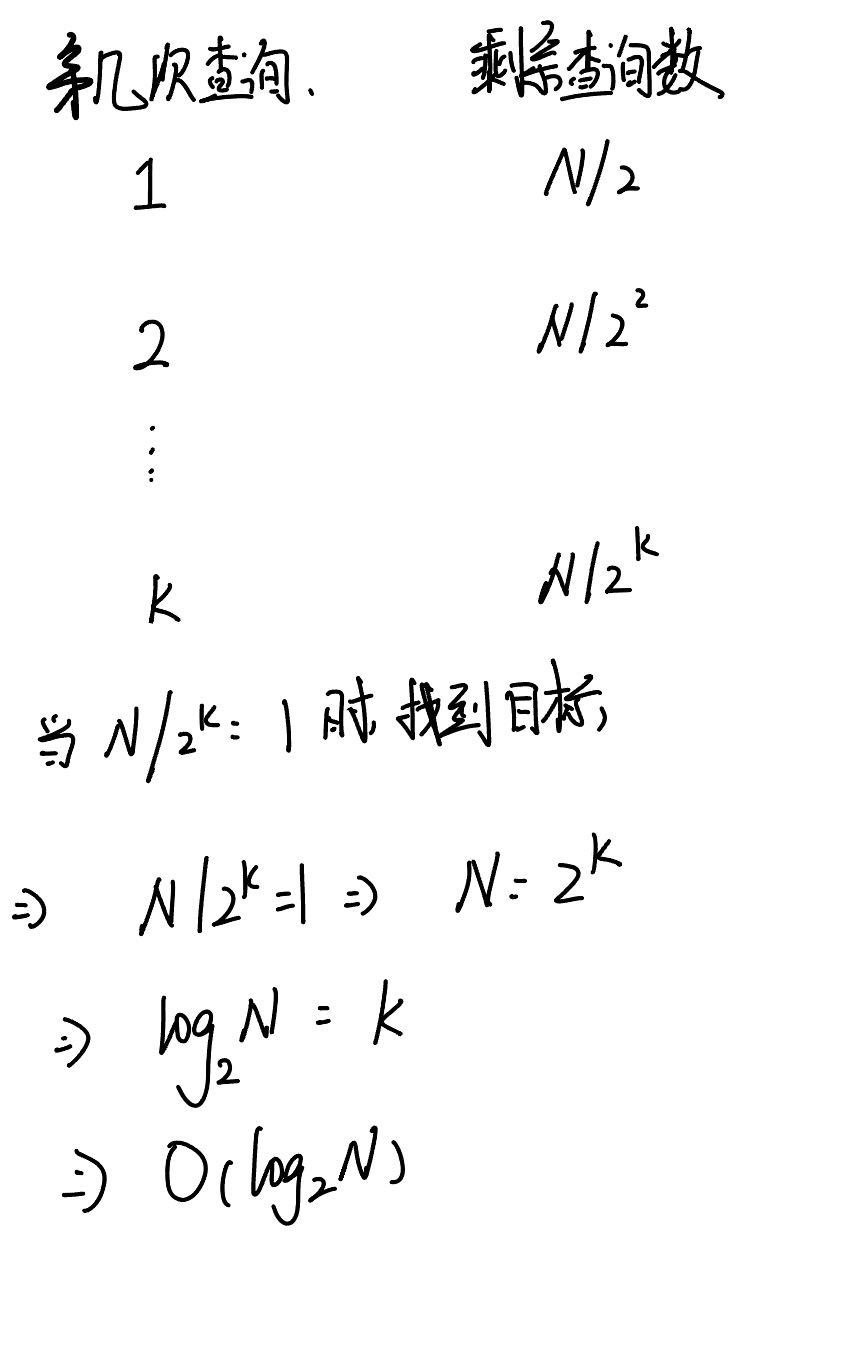 第几次查询. 剩余查询数
1 N/2
2 N/2²
⋮
k N/2ᵏ
当 N/2ᵏ = 1 时, 找到目标,
⇒ N/2ᵏ = 1 ⇒ N = 2ᵏ
⇒ log₂N = k
⇒ O(log₂N)